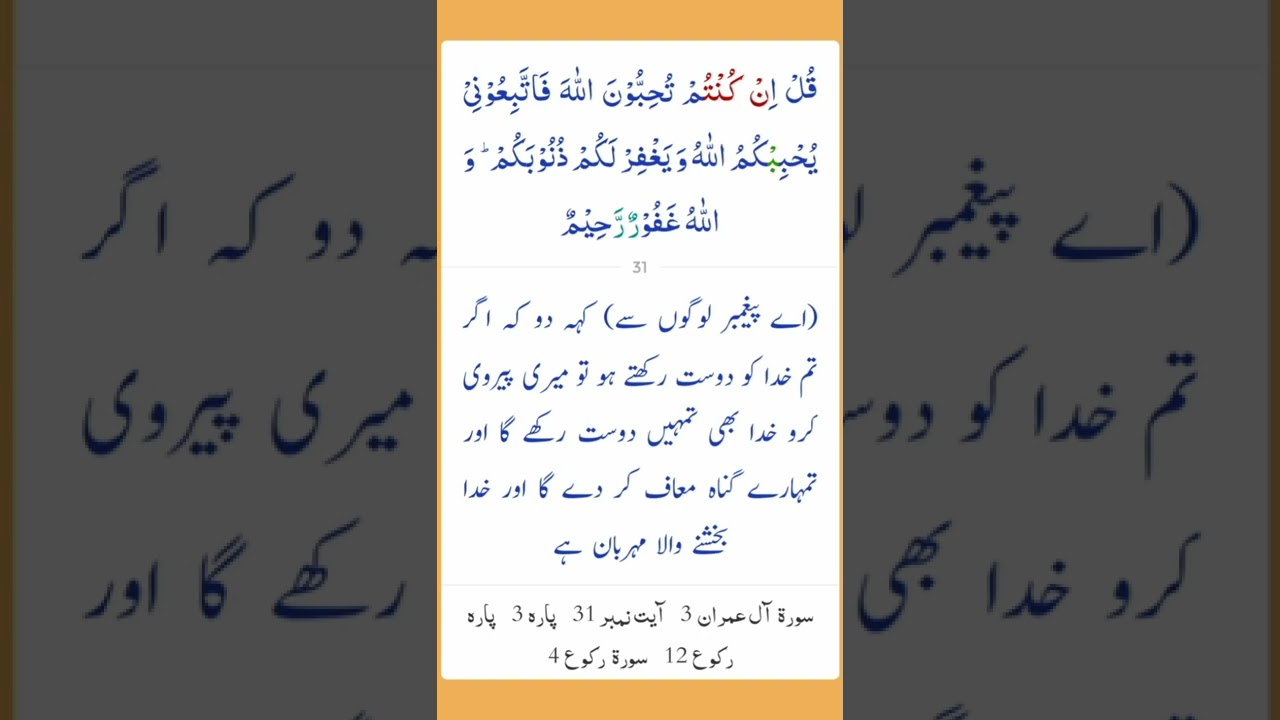 قُلْ اِنْ كُنْتُمْ تُحِبُّوْنَ اللّٰهَ فَاتَّبِعُوْنِیْ
یُحْبِبْكُمُ اللّٰهُ وَ یَغْفِرْ لَكُمْ ذُنُوْبَكُمْؕ-وَ
اللّٰهُ غَفُوْرٌ رَّحِیْمٌ
31
(اے پیغمبر لوگوں سے) کہہ دو کہ اگر
تم خدا کو دوست رکھتے ہو تو میری پیروی
کرو خدا بھی تمہیں دوست رکھے گا اور
تمہارے گناہ معاف کر دے گا اور خدا
بخشنے والا مہربان ہے
سورة آل عمران 3 آیت نمبر 31 پارہ 3 پارہ
رکوع 12 سورة رکوع 4